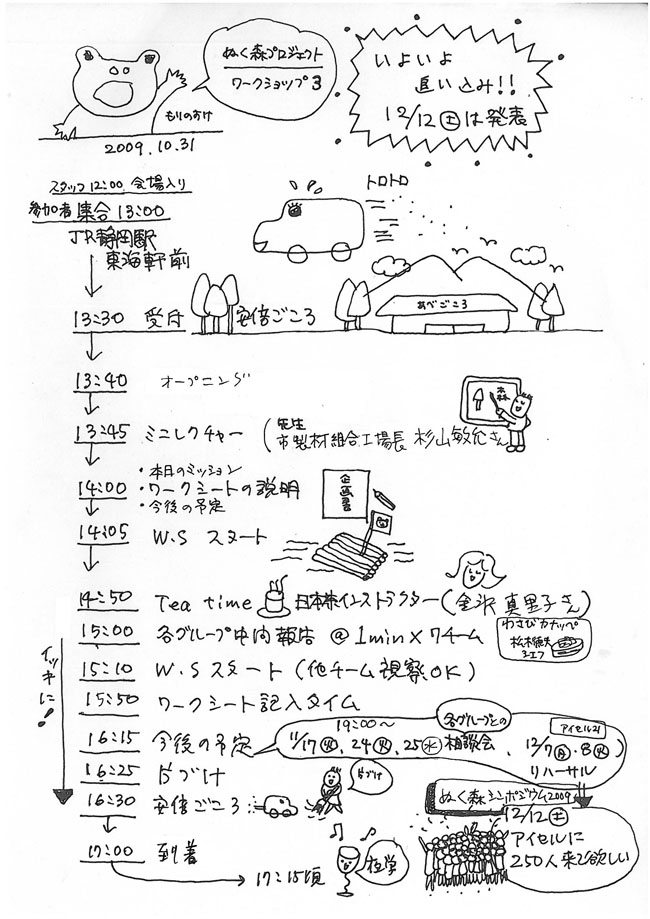 ぬく森プロジェクト
ワークショップ3
もりのすけ
2009.10.31
いよいよ
追い込み!!
12/12㊏は発表
スタッフ12:00 会場入り
参加者集合 13:00
JR静岡駅
東海軒前
トロトロ
あべごころ
13:30 受付 安倍ごころ
13:40 オープニング
森
13:45 ミニレクチャー (先生
市製材組合工場長 杉山敏允さん
・本日のミッション
14:00 ・ワークシートの説明
・今後の予定
企画書
14:05 W.S スタート
14:50 Tea time 日本茶インストラクター(金沢 真里子さん)
わさびカナッペ
15:00 各グループ中内報告 @1min×7チーム
イッキに!
15:10 W.Sスタート(他チーム視察OK)
15:50 ワークシート記入タイム
16:15 今後の予定
19:00〜
11/17㊋、24㊋、25㊌
各グループとの
相談会
アイセル21
、12/7㊊・8㊋)
リハーサル
16:25 片づけ
片づけ
16:30 安倍ごころ
ぬく森シンポジウム2009
12/12㊏
アイセルに
250人来て欲しい
17:00 到着
17:15頃